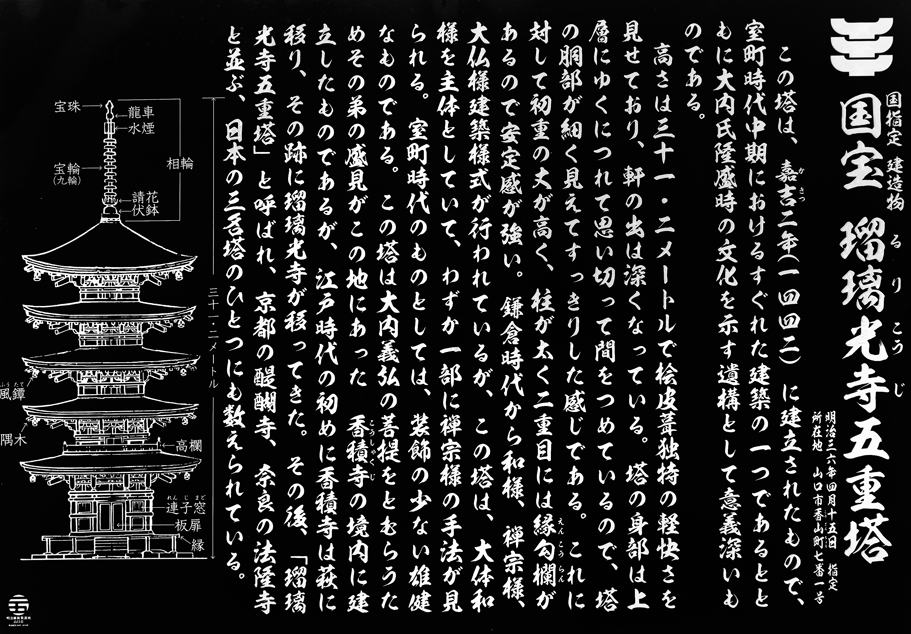 国指定 建造物
国宝 瑠璃光寺五重塔
るりこうじ
明治三六年四月十五日 指定
所在地 山口市香山町七番一号
この塔は、嘉吉二年(一四四二)に建立されたもので、
かきつ
室町時代中期におけるすぐれた建築の一つであるとと
もに大内氏隆盛時の文化を示す遺構として意義深いも
のである。
高さは三十一・二メートルで桧皮葺独特の軽快さを
見せており、軒の出は深くなっている。塔の身部は上
層にゆくにつれて思い切って間をつめているので、塔
の胴部が細く見えてすっきりした感じである。これに
対して初重の丈が高く、柱が太く二重目には縁勾欄が
えんこうらん
あるので安定感が強い。鎌倉時代から和様、禅宗様、
大仏様建築様式が行われているが、この塔は、大体和
様を主体としていて、わずか一部に禅宗様の手法が見
られる。室町時代のものとしては、装飾の少ない雄健
なものである。この塔は大内義弘の菩提をとむらうた
めその弟の盛見がこの地にあった 香積寺の境内に建
こうしゃくじ
立したものであるが、江戸時代の初めに香積寺は萩に
移り、その跡に瑠璃光寺が移ってきた。その後、「瑠璃
光寺五重塔」と呼ばれ、京都の醍醐寺、奈良の法隆寺
と並ぶ、日本の三名塔のひとつにも数えられている。
宝珠
龍車
水煙
相輪
宝輪
(九輪)
請花
伏鉢
三十一・二メートル
ふうたく
風鐸
隅木
高欄
れんじまど
連子窓
板扉
縁